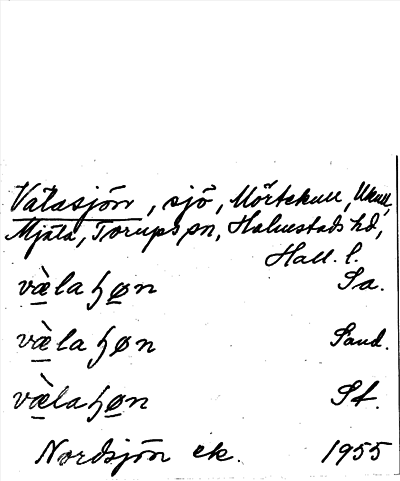 Valasjön, sjö, Mörtekull, Ukull,
Mjäla, Torups sn, Halmstads hd,
Hall. l.
væ̀laɧøn Sa.
væ̀laɧøn Sand.
væ̀laɧøn St.
Nordsjön ek. 1955